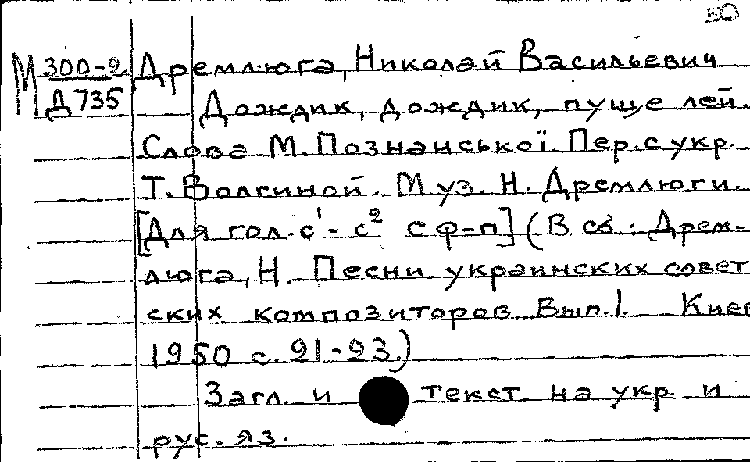 М 300-2 Дремлюга, Николай Васильевич
Д735 Дождик, дождик, пуще лей.
Слова М. Познанської. Пер. с укр.
Т. Волгиной. Муз. Н. Дремлюги.
[Для гол. c¹-c² с ф-п] (В сб.: Дрем-
люга, Н. Песни украинских совет
ских композиторов. Вып. 1. Киев
1950 с. 21-23.)
Загл. и текст на укр и
рус. яз.